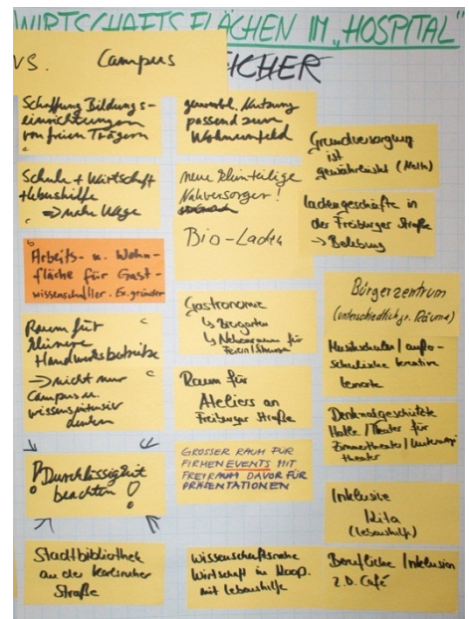 WIRTSCHAFTSFLÄCHEN IM „HOSPITAL"
VS. Campus
ICHER
Schaffung Bildungs-
einrichtungen
von freien Trägern
Schule + Wirtschaft
+ Lebenshilfe
=> nahe Wege
Arbeits- u. Wohn-
fläche für Gast-
wissenschaftler. Ex.gründer
Raum für
kleinere
Handwerksbetriebe
=> nicht nur
Campus u.
wissensintensiv
denken
! Durchlässigkeit
beachten !
Stadtbibliothek
an der Karlsruher
Straße
gewerbl. Nutzung
passend zum
Wohnumfeld
neue kleinteilige
Nahversorger!
Bio-Laden
Gastronomie
↳ Biergarten
↳ Nebenraum für
Raum für
Ateliers an
Freiburger Straße
GROSSER RAUM FÜR
FIRMEN EVENTS MIT
FREIRAUM DAVOR FÜR
PRÄSENTATIONEN
Wissenschaftsnahe
Wirtschaft in Koop.
mit Lebenshilfe
Grundversorgung
ist
gewährleistet (Nett)
Ladengeschäfte in
der Freiburger Straße
-> Belebung
Bürgerzentrum
(unterschiedlich gr. Räume)
Musikschule / außer-
schulische kreative
Lernorte
Denkmalgeschützte
Halle / Theater für
Zimmertheater / Unterwegs
theater
Inklusive
Kita
(Lebenshilfe)
Berufliche Inklusion
z.B. Café